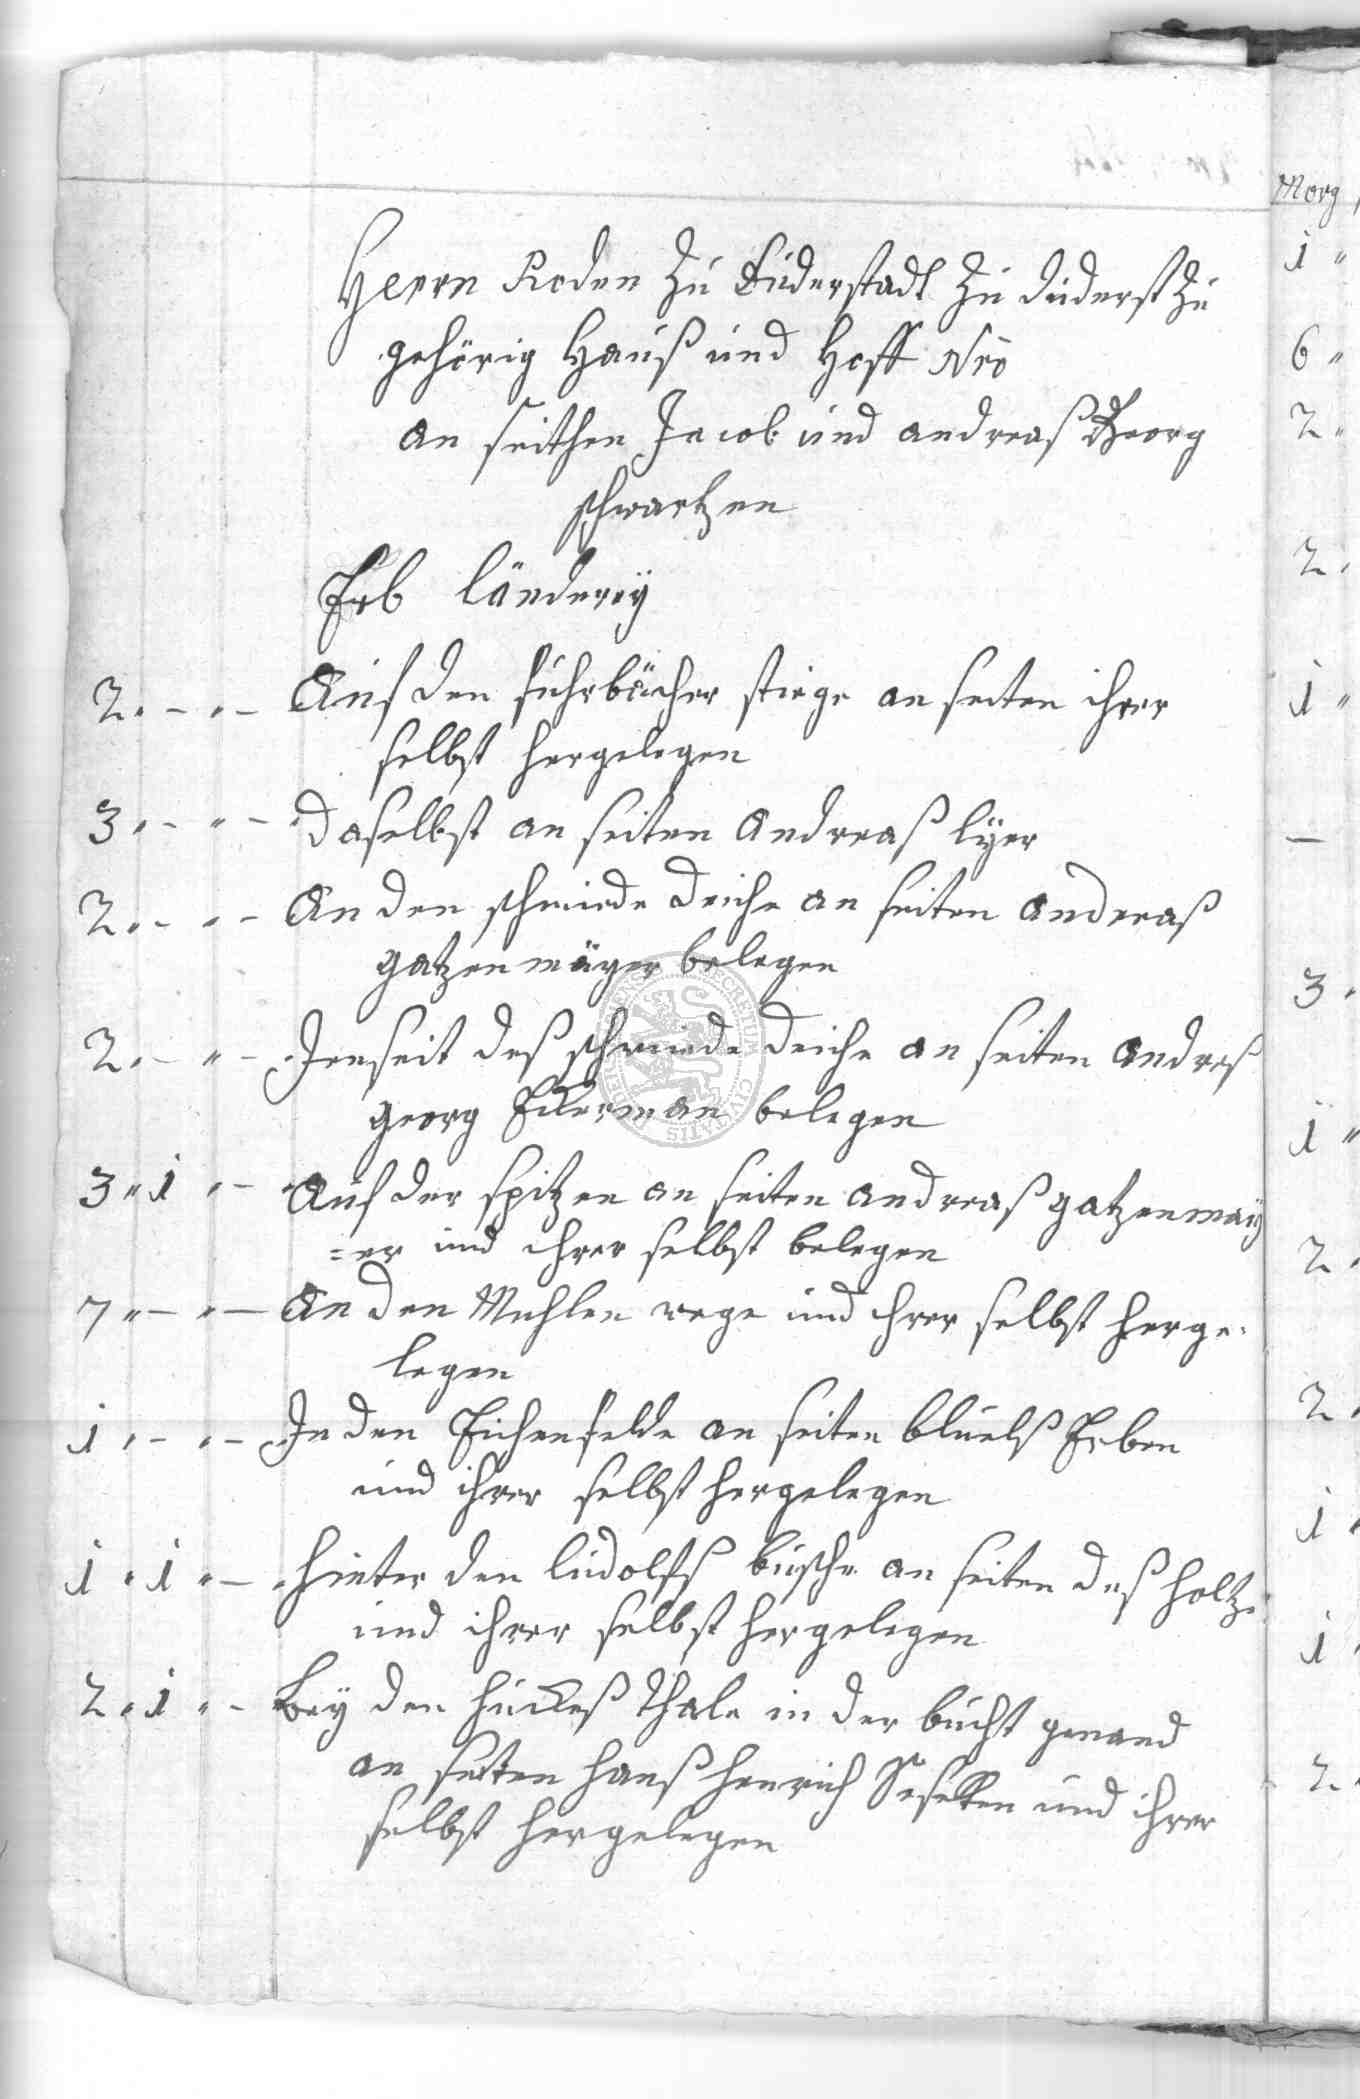 Herrn Roden Zu Duderstadt Zu duderst Zu
gehörig Hauß und Hoff Nro
an seithen Jacob und andreaß Georg
schwartzen
Erb länderey
2 „ – „ – Auf den fuhrbächer stiege an seiten ihrer
selbst hergelegen
3 „ – „ – Daselbst an seiten Andreaß lyer
2 „ – „ – An den schmiede deiche an seiten Anderaß
gatzenmäyer belegen
2 „ – „ – Jenseit deß schmiede deiche an seiten Andreß
georg Eckerman belegen
3 „ 1 „ – Auf der spitzen an seiten andreaß gatzenmaÿ
=er und ihrer selbst belegen
7 „ – „ – An den Muhlen wege und ihrer selbst herge
legen
1 „ – „ – In den Eichenfelde an seiten bluelß Erben
und ihrer selbst hergelegen
1 „ 1 „ – hinter den ludolffs busche an seiten deß holtze
und ihrer selbst hergelegen
2 „ 1 „ – Beÿ den huckeß thale in der bucht genand
an seiten hanß henrich und ihrer
selbst hergelegen
Morg
1 „
6 „
2 „
2 „
1 „
–
3 „
1 „
2 „
2 „
1 „
1 „
2 „
SECRETUM CIVITATIS